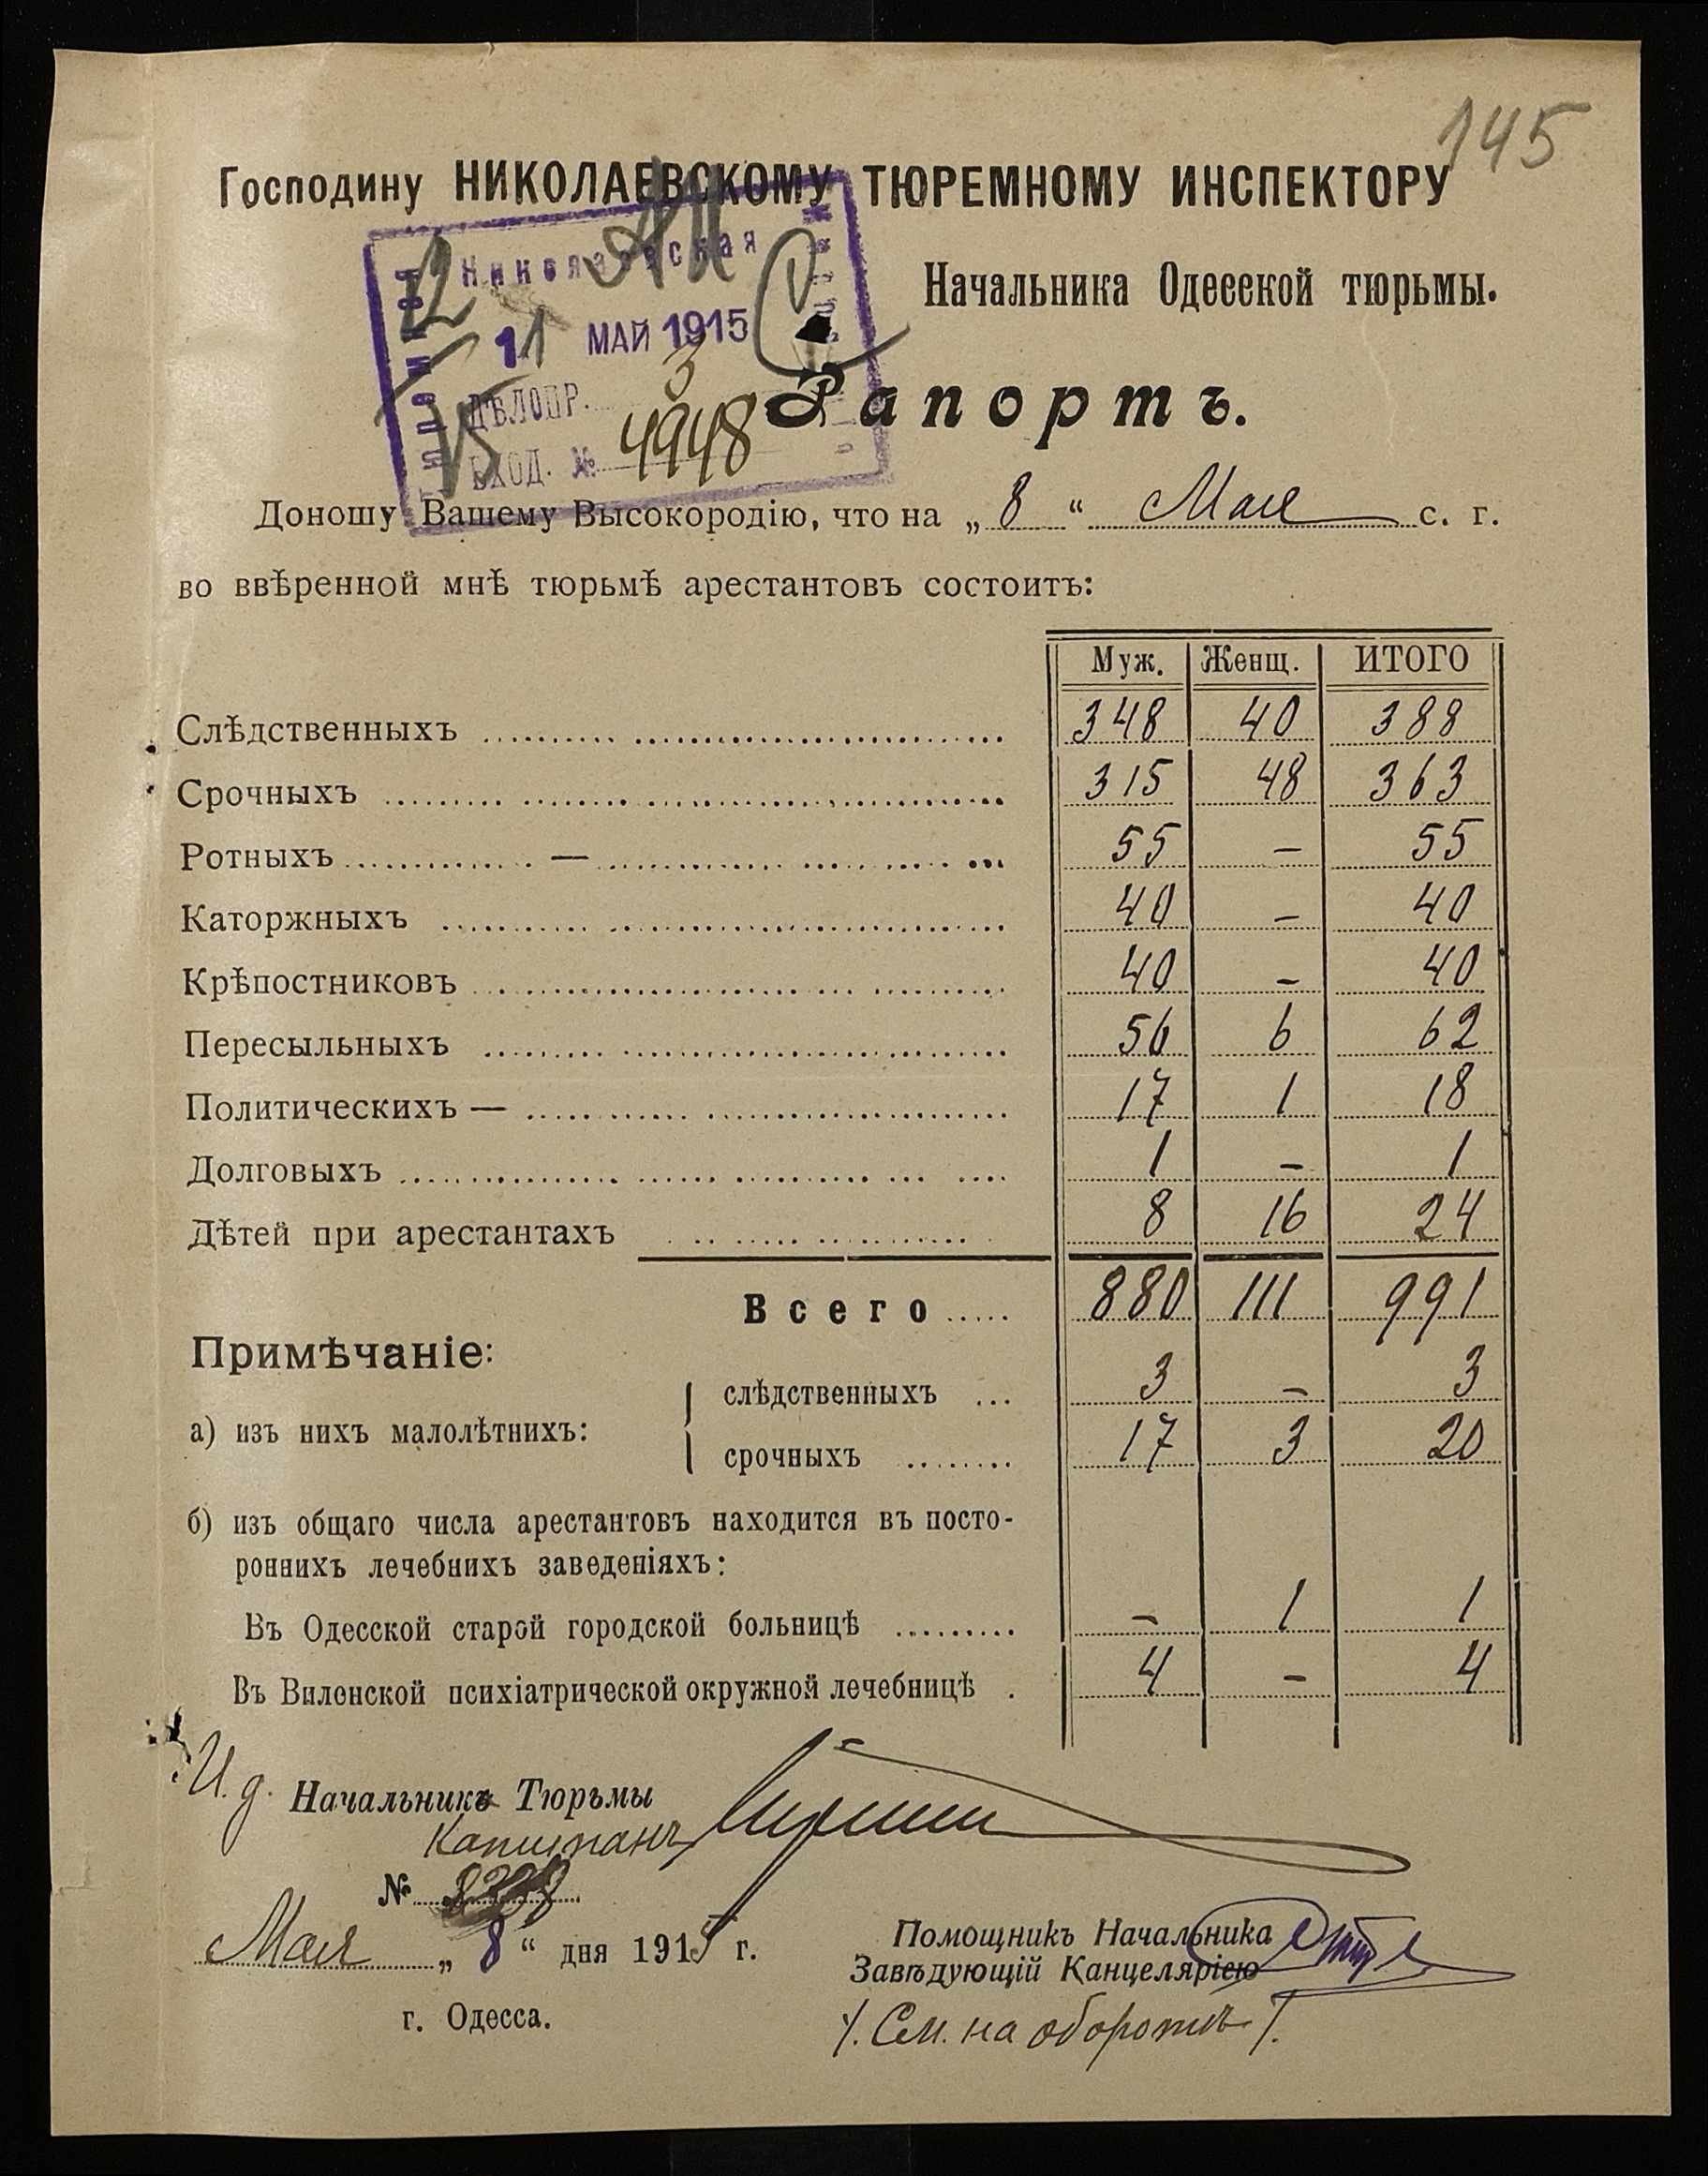 145
Господину НИКОЛАЕВСКОМУ ТЮРЕМНОМУ ИНСПЕКТОРУ
Николаевская
11 МАЙ 1915
ДѢЛОПР. 3
ВХОД. № 4948
Начальника Одесской тюрьмы.
Рапортъ.
Доношу Вашему Высокородію, что на „ 8 “ Мая с. г.
во ввѣренной мнѣ тюрьмѣ арестантовъ состоитъ:
Муж. Женщ. ИТОГО
Слѣдственныхъ 348 40 388
Срочныхъ 315 48 363
Ротныхъ — 55 – 55
Каторжныхъ 40 – 40
Крѣпостниковъ 40 – 40
Пересыльныхъ 56 6 62
Политическихъ — 17 1 18
Долговыхъ 1 – 1
Дѣтей при арестантахъ 8 16 24
Всего 880 111 991
Примѣчаніе:
а) изъ нихъ малолѣтнихъ:
слѣдственныхъ 3 – 3
срочныхъ 17 3 20
б) изъ общаго числа арестантовъ находится въ посто-
роннихъ лечебнихъ заведеніяхъ:
Въ Одесской старой городской больницѣ – 1 1
Въ Виленской психіатрической окружной лечебницѣ 4 – 4
И. д. Начальника Тюрьмы
Капитанъ
№
Мая „ 8 “ дня 1915 г.
г. Одесса.
Помощникъ Начальника
Завѣдующій Канцеляріею
/. См. на оборотѣ /.